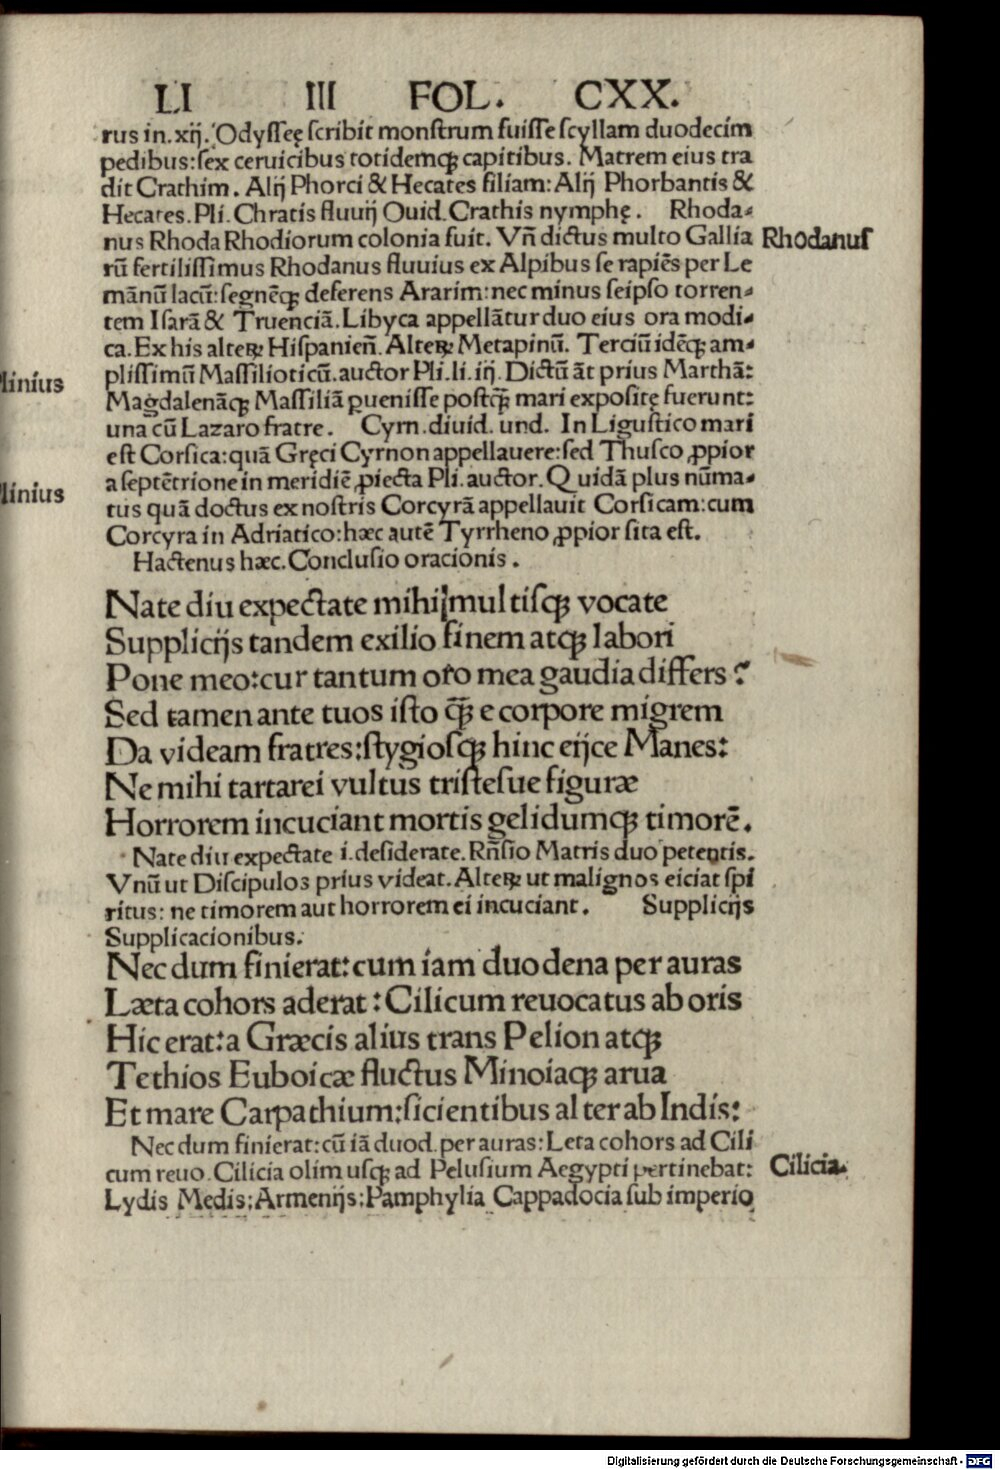 LI III FOL. CXX.
rus in.xij. Odyſſeę ſcribit monſtrum fuiſſe ſcyllam duodecim
pedibus:ſex ceruicibus totidemqꝫ capitibus. Matrem eius tra
dit Crathim. Alij Phorci & Hecates filiam: Alij Phorbantis &
Hecates. Pli. Chratis fluuij Ouid. Crathis nymphę. Rhoda-
nus Rhoda Rhodiorum colonia fuit. Vñ dictus multo Gallia
Rhodanuſ
rū fertiliſſimus Rhodanus fluuius ex Alpibus ſe rapiēs per Le
mānū lacū: ſegnēqꝫ deferens Ararim: nec minus ſeipſo torren-
tem Iſarā & Truenciā. Libyca appellātur duo eius ora modi-
ca. Ex his alteꝝ Hiſpanieñ. Alteꝝ Metapinū. Terciū idēqꝫ am-
pliſſimū Maſſilioticū. auctor Pli. li. iij. Dictū āt prius Marthā:
linius
Magdalenāqꝫ Maſſiliā ꝑueniſſe poſtqꝫ̄ mari expoſitę fuerunt:
una cū Lazaro fratre. Cyrn. diuid. und. In Liguſtico mari
eſt Corſica: quā Gręci Cyrnon appellauere: ſed Thuſco ꝓpior
a ſeptētrione in meridiē ꝓiecta Pli. auctor. Quidā plus nūma-
linius
tus quā doctus ex noſtris Corcyrā appellauit Corſicam: cum
Corcyra in Adriatico: hæc autē Tyrrheno ꝓpior ſita eſt.
Hactenus hæc. Concluſio oracionis.
Nate diu expectate mihi multiſqꝫ vocate
Supplicijs tandem exilio finem atqꝫ labori
Pone meo: cur tantum oro mea gaudia differs?
Sed tamen ante tuos iſto qꝫ̄ e corpore migrem
Da videam fratres: ſtygioſqꝫ hinc eijce Manes:
Ne mihi tartarei vultus triſteſue figuræ
Horrorem incuciant mortis gelidumqꝫ timorē.
Nate diu expectate i. deſiderate. Rñſio Matris duo petentis.
Vnū ut Diſcipulos prius videat. Alteꝝ ut malignos eiciat ſpi
ritus: ne timorem aut horrorem ei incuciant. Supplicijs
Supplicacionibus.
Nec dum finierat: cum iam duodena per auras
Læta cohors aderat: Cilicum reuocatus ab oris
Hic erat: a Græcis alius trans Pelion atqꝫ
Tethios Euboicæ fluctus Minoiaqꝫ arua
Et mare Carpathium: ſicientibus alter ab Indis:
Nec dum finierat: cū iā duod. per auras: Leta cohors ad Cili
cum reuo. Cilicia olim uſqꝫ ad Peluſium Aegypti pertinebat:
Cilicia.
Lydis Medis: Armenijs: Pamphylia Cappadocia ſub imperio
Digitalisierung gefördert durch die Deutsche Forschungsgemeinschaft - DFG